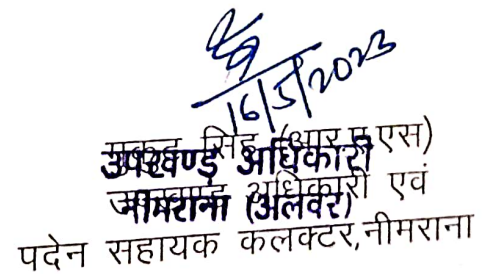 16/5/2023
मुकुट सिंह (आर.ए.एस)
उपखण्ड अधिकारी
उपखण्ड अधिकारी एवं
नीमराना (अलवर)
पदेन सहायक कलक्टर,नीमराना